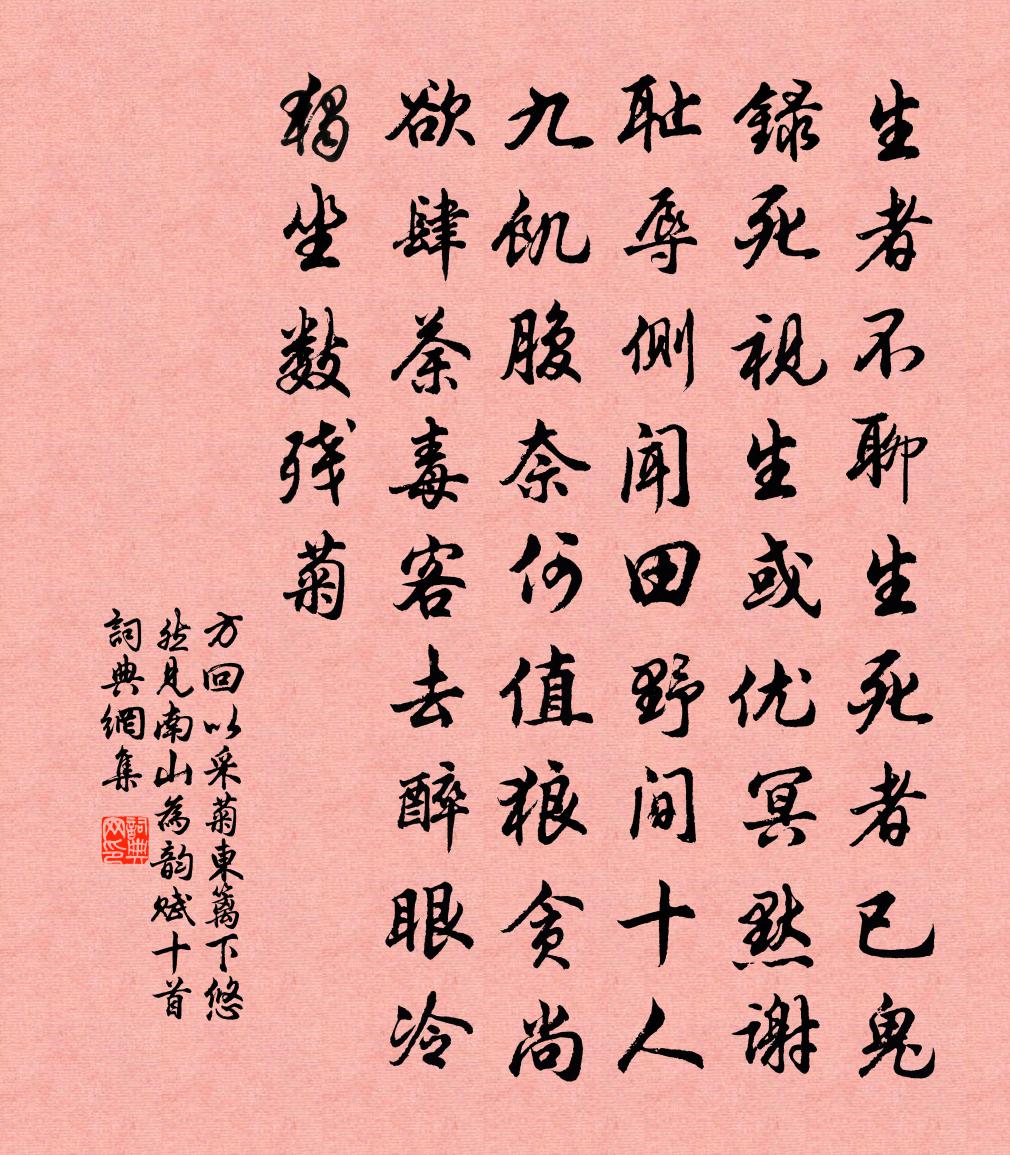 生者不聊生死者已鬼
録死視生或优冥默谢
耻辱側闻田野间十人
九饥腹奈何值狼贪尚
欲肆荼毒客去醉眼冷
独坐数残菊
方回以采菊東篱下悠
然見南山為韵赋十首
詞典網集
詞典網印